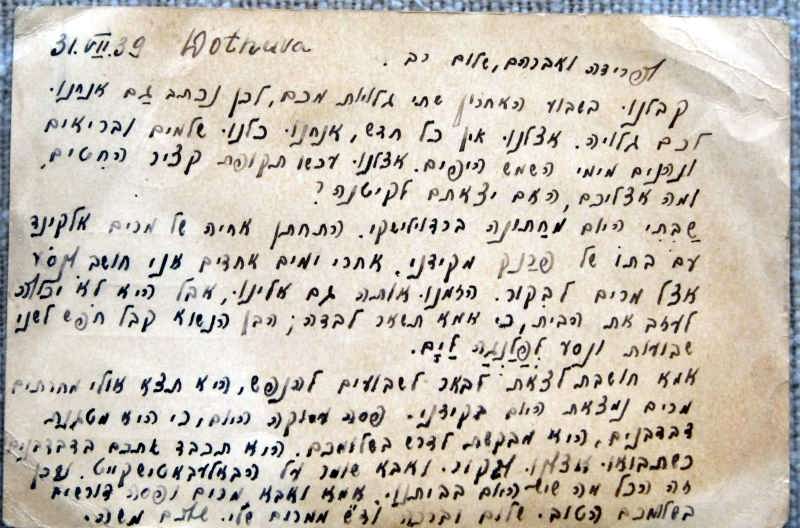 31.VII.39 Dotnuva
לפרידה ואברהם, שלום רב.
קבלנו בשבוע האחרון שתי גלויות מכם, לכן נכתב גם אנחנו
לכם גלויה. אצלנו אין כל חדש, אנחנו כלנו שלמים ובריאים
ונהנים מימי השמש היפים. אצלנו עכשו תקופת קציר החטים.
ומה אצליכם, האם יצאתם לקיטנה?
שבתי היום מחתונה ברדוילישקי. התחתן אחיה של מרים אלקינד
עם בתו של פרנק מקידני. אחרי ימים אחדים אני חושב לנסע
אצל מרים לבקור. הזמנו אותה גם אלינו, אבל היא לא יכולה
לעזב את הבית, כי אמא תשאר לבדה; הבן הנשוא קבל חפש לשני
שבועות ונסע לפלנגה לים.
אמא חושבת לצאת לבאר לשבועים להנפש, היא תצא אולי מחרתים
מרים נמצאת היום בקידני. פסה עסוקה היום, כי היא מטגנת
דבדבנים, היא מבקשת לדרש בשלומכם. היא תכבד אתכם בדבדבנים
כשתבואו אצלנו לבקור. ואבא שומר על
זה הכל מה שיש היום בביתנו. אמא ואבא מרים ופסה דורשים
בשלומכם הטוב. שלום וברכה וד"ש ממרים שלי. שלכם משה.